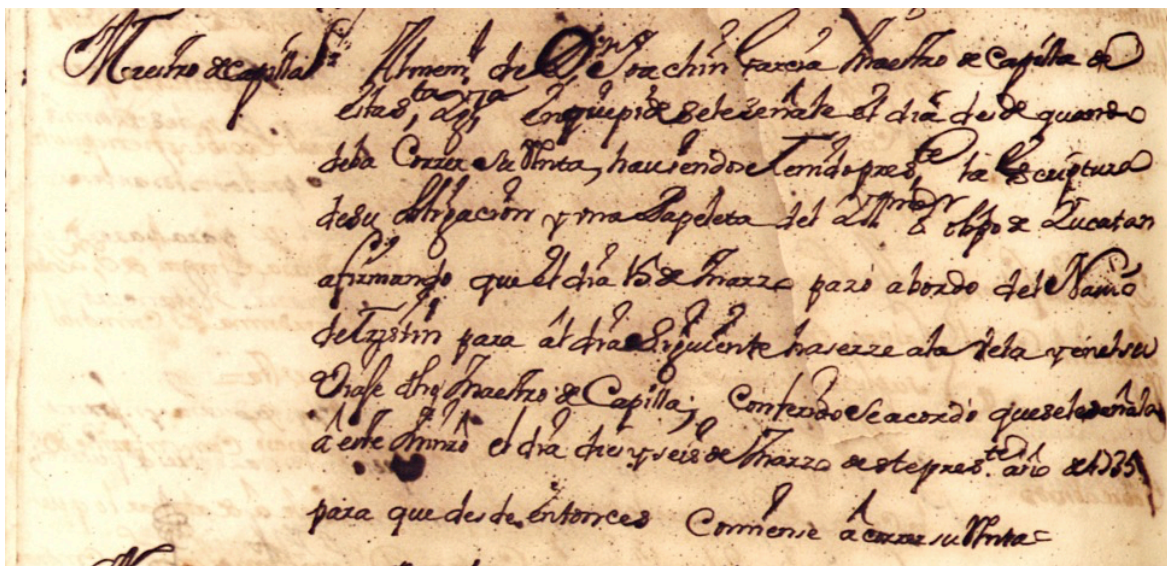 Maestro de Capilla
Al mem.l de Dn Joachin Garcia Maestro de Capilla de
esta S.ta Ygl.a en que pide se le señale el dia desde quando
deba Correr su Renta, haviendose Tenido pres.te la Escriptura
de su obligacion y una Papeleta del Yll.mo S.r obpo de Yucatan
afirmando que el dia 15 de Marzo pazó abordo del Navio
de Tystin para al dia Siguiente haserze ala Vela y en el su
Viaje dho Maestro de Capilla; Conferido Se acordó que sele señala
á este Minró el dia dies y seis de Marzo de este pres.te año de 1735
para que desde entonces Comiense á correr su Renta=